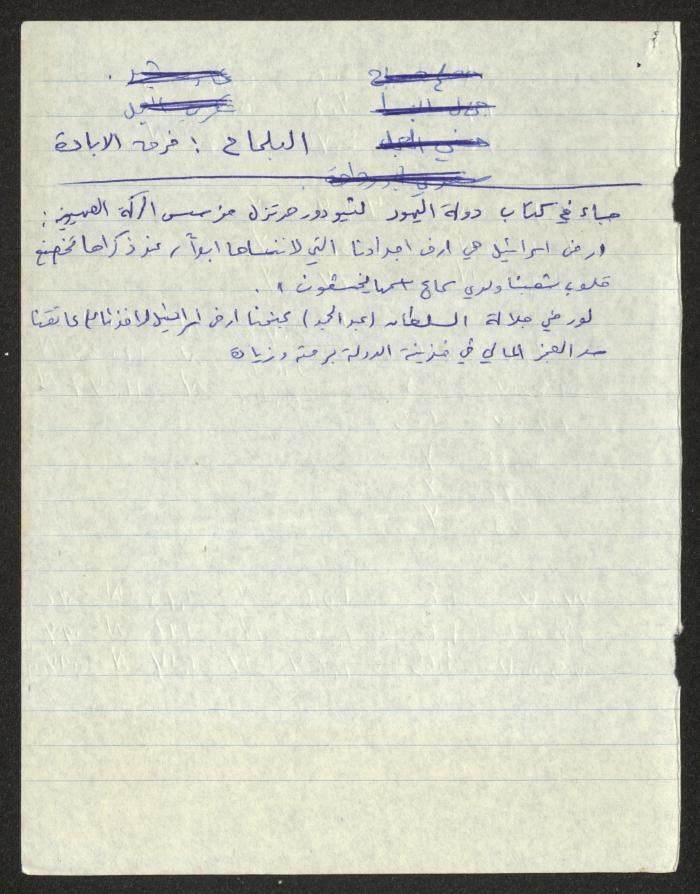 البلماح : فرق الابادة
جاء في كتاب دولة اليهود لتيودور هرتزل مؤسس الحركة الصهيونية :
ارض اسرائيل هي ارض اجدادنا التي لا ننساها ابداً , عند ذكراها تخضع
قلوب شعبنا ولدي سماع اسمها يخشعون ,.
لو رضي جلالة السلطان (عبد الحميد) بمنحنا ارض اسرائيل لاخذنا على عاتقنا
سد العجز المالي في خزينة الدولة برمته وزيادة